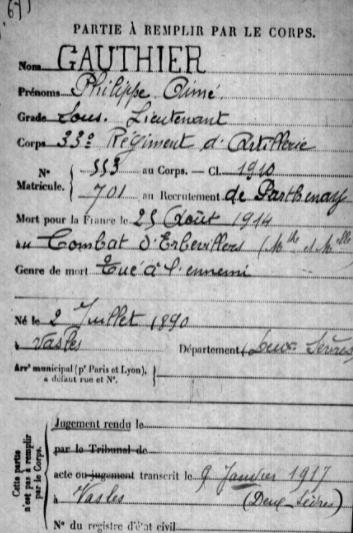 PARTIE À REMPLIR PAR LE CORPS.
Nom GAUTHIER
Prénoms Philippe Aimé.
Grade Sous. Lieutenant
Corps 33e Régiment d'Artillerie
N° 553 au Corps. — Cl. 1910
Matricule. 701 au Recrutement de Parthenay
Mort pour la France le 25 Août 1914
au Combat d'Erbevillers (Mthe et Mlle
Genre de mort Tué à l'ennemi
Né le 2 Juillet 1890
à Vasles Département (Deux Sèvres)
Arrt municipal (pr Paris et Lyon), à défaut rue et N°.
Cette partie n'est pas à remplir par le Corps.
Jugement rendu le
par le Tribunal de
acte ou jugement transcrit le 9 Janvier 1917
à Vasles (Deux-Sèvres)
N° du registre d'état civil